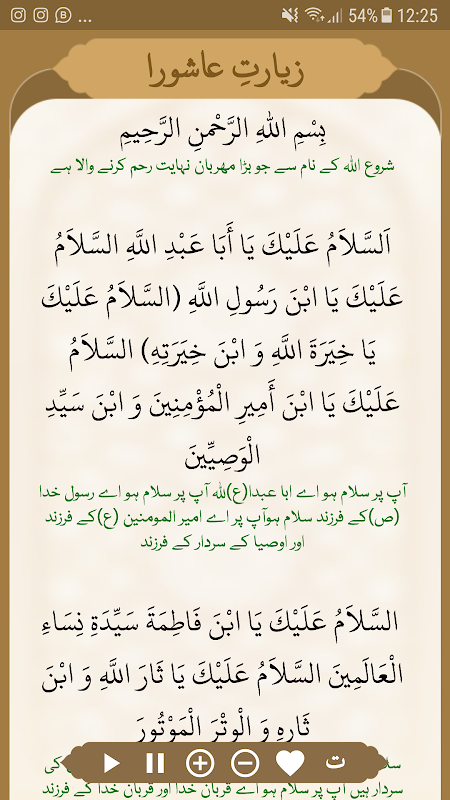 ... 54% 12:25
زیارتِ عاشورا
بِسْمِ اللهِ الرَّحْمنِ الرَّحِيمِ
شروع اللہ کے نام سے جو بڑا مهربان نہایت رحم کرنے والا ہے
اَلسَّلاَمُ عَلَيْكَ يَا أَبَا عَبْدِ اللَّهِ السَّلاَمُ
عَلَيْكَ يَا ابْنَ رَسُولِ اللَّهِ (السَّلاَمُ عَلَيْكَ
يَا خِيَرَةَ اللَّهِ وَ ابْنَ خِيَرَتِهِ) السَّلاَمُ
عَلَيْكَ يَا ابْنَ أَمِيرِ الْمُؤْمِنِينَ وَ ابْنَ سَيِّدِ
الْوَصِيِّينَ
آپ پر سلام ہو اے ابا عبدا(ع)للہ آپ پر سلام ہو اے رسول خدا
(ص)کے فرزند سلام ہوآپ پر اے امیر المومنین (ع)کے فرزند
اور اوصیا کے سردار کے فرزند
السَّلاَمُ عَلَيْكَ يَا ابْنَ فَاطِمَةَ سَيِّدَةِ نِسَاءِ
الْعَالَمِينَ السَّلاَمُ عَلَيْكَ يَا ثَارَ اللَّهِ وَ ابْنَ
ثَارِهِ وَ الْوِتْرَ الْمَوْتُورَ
کی
ت
سردار ہیں آپ پر سلام ہو اے قربان خدا اور قربان خدا کے فرزند